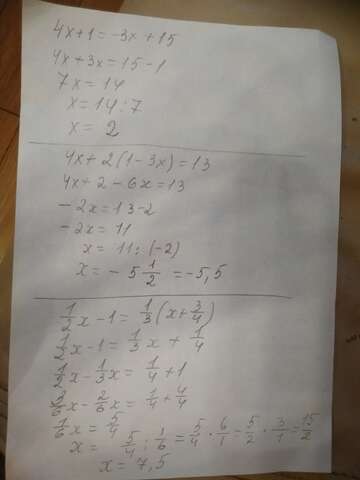 4x+1=-3x+15
4x+3x=15-1
7x=14
x=14:7
x=2
4x+2(1-3x)=13
4x+2-6x=13
-2x=13-2
-2x=11
x=11:(-2)
x=-5 1/2=-5,5
1/2x-1=1/3(x+3/4)
1/2x-1=1/3x+1/4
1/2x-1/3x=1/4+1
3/6x-2/6x=1/4+4/4
1/6x=5/4
x=5/4:1/6=5/4·6/1=5/2·3/1=15/2
x=7,5